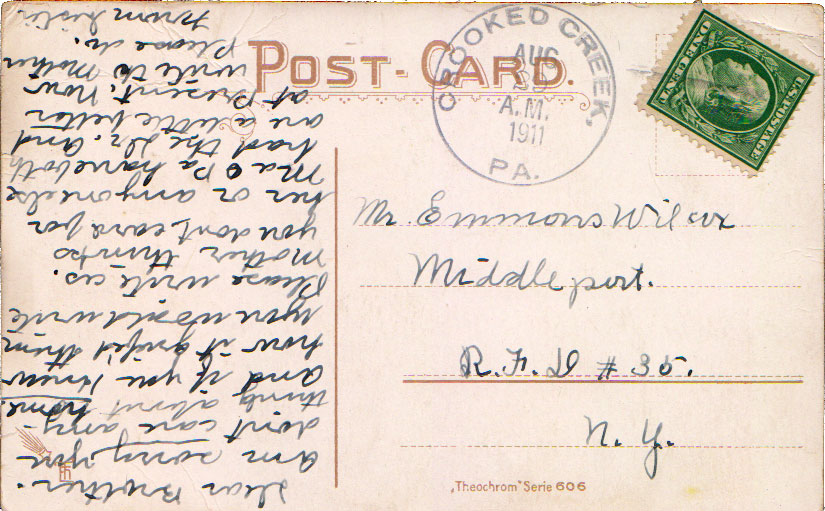 POST-CARD.
CROOKED CREEK,
AUG
A.M.
1911
PA.
U.S.POSTAGE
ONE CENT
Mr. Emmons Wilcox
Middleport.
R.F.D # 35.
N.Y.
"Theochrom" Serie 606
Dear Brother.
am sorry you
don't care any-
thing about home.
and if you knew
how it griefs them
you would write
Please write us.
mother thinks
you dont care for
her or anyone else
Ma & Pa have both
had the and
are a little better
at Present. Now
write to mother
Please do.
from